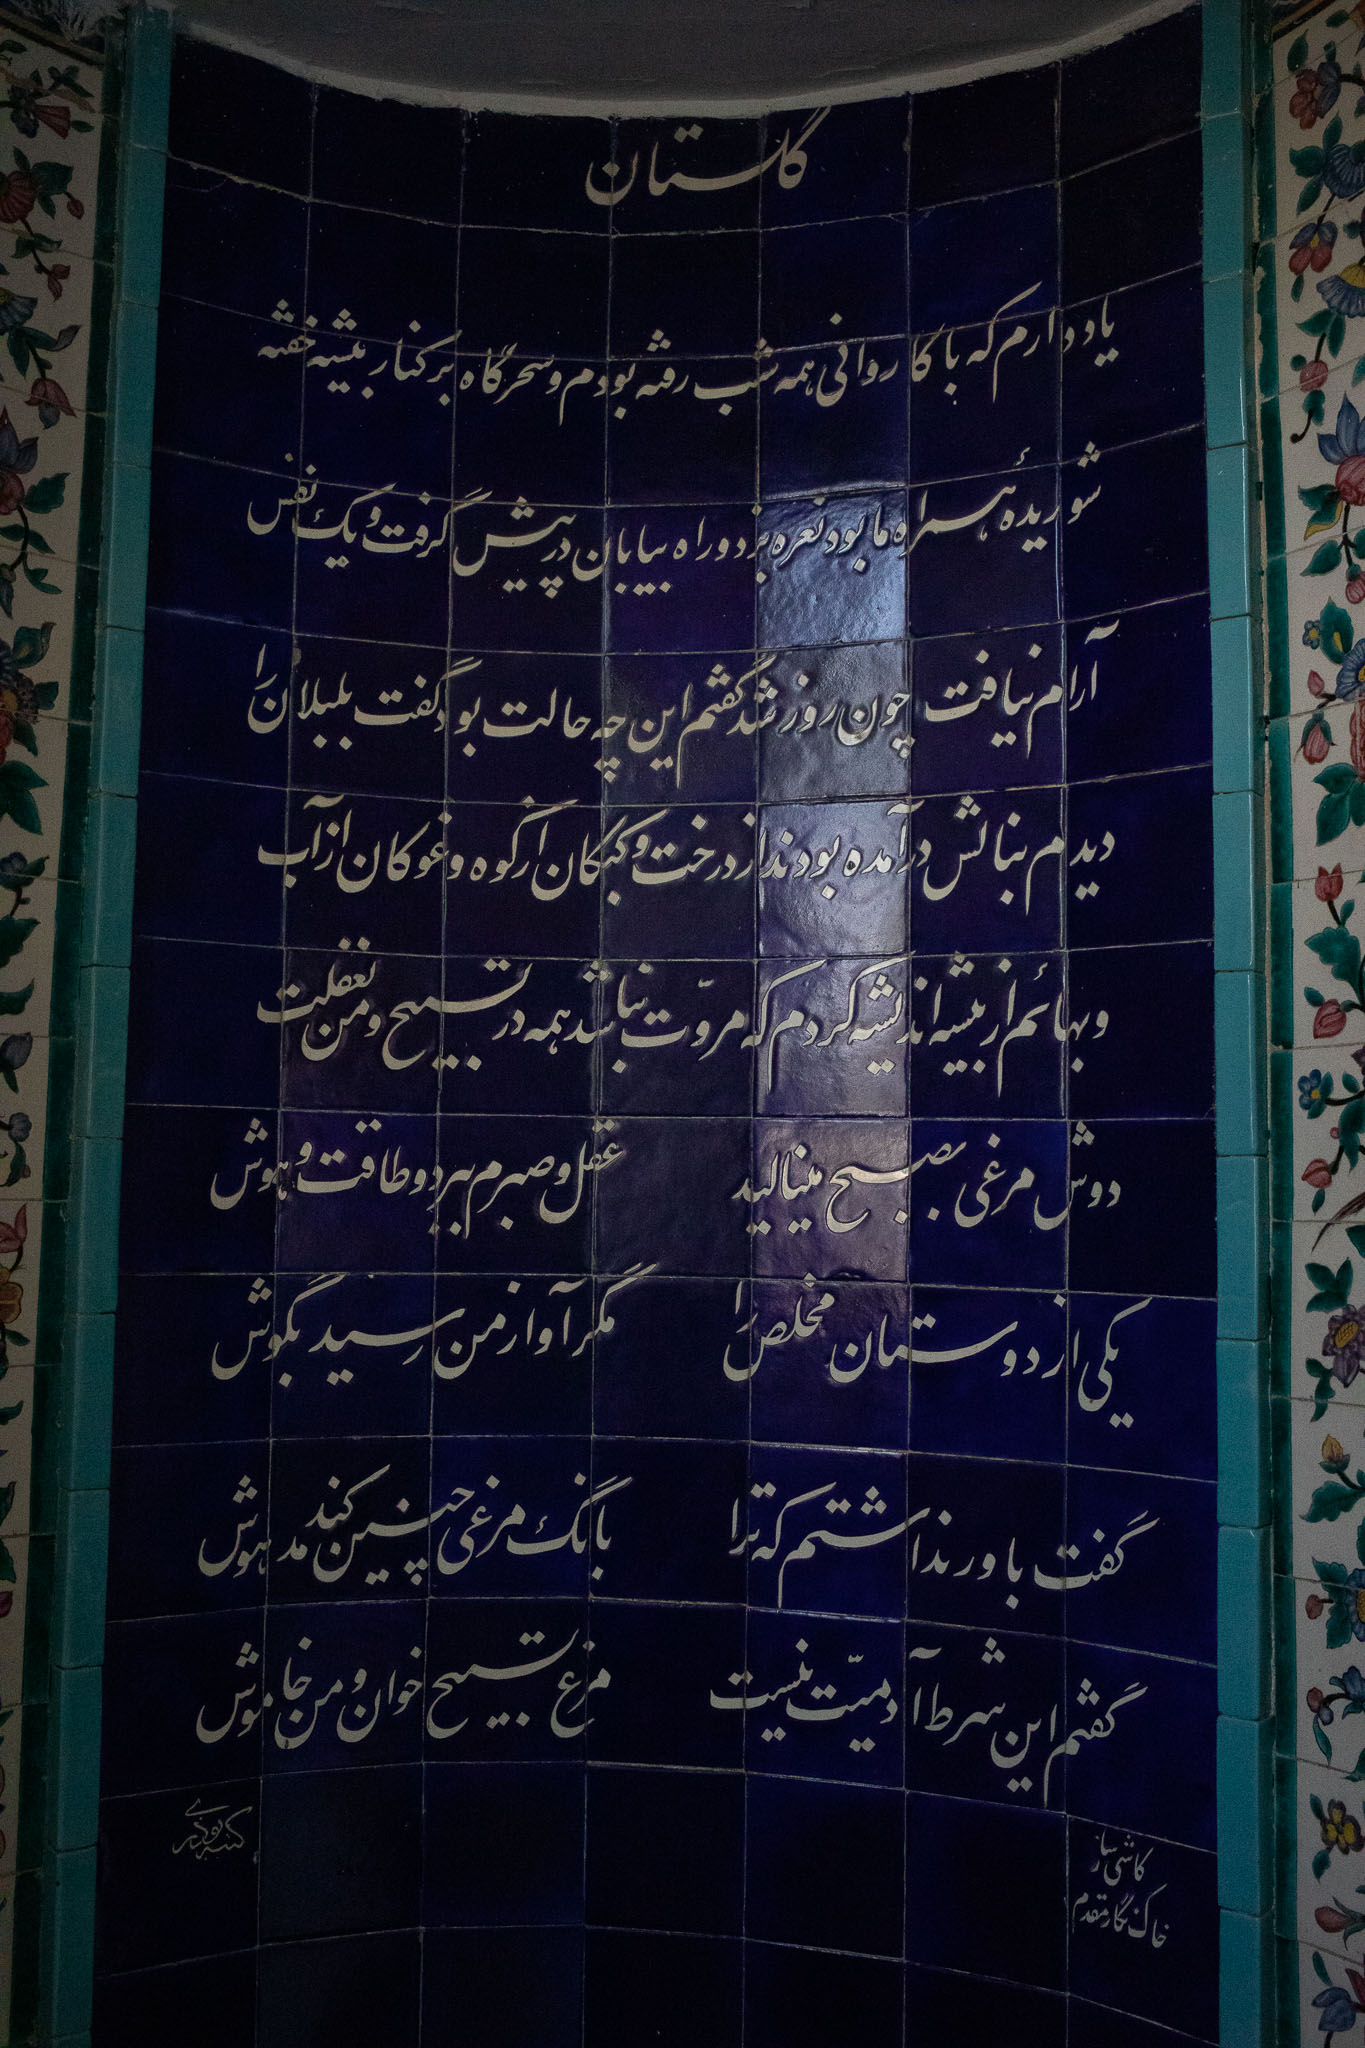 گلستان
یاد دارم که با کاروانی همه شب رفته بودم و سحرگاه بر کنار بیشه خفته
شوریدهٔ همراه ما بود نعره بزد و راه بیابان در پیش گرفت و یک نفس
آرام نیافت چون روز شد گفتم این چه حالت بود گفت بلبلان را
دیدم بنالش درآمده بودند از درخت و کبکان از کوه و غوکان از آب
و بهائم از بیشه اندیشه کردم که مروّت نباشد همه در تسبیح و من بغفلت
دوش مرغی بصبح مینالید عقل و صبرم ببرد و طاقت و هوش
یکی از دوستان مخلص را مگر آواز من رسید بگوش
گفت باور نداشتم که ترا بانگ مرغی چنین کند مدهوش
گفتم این شرط آدمیّت نیست مرغ تسبیح خوان و من خاموش
کاشی ساز
خاک نگار مقدم
کتبه بوذری